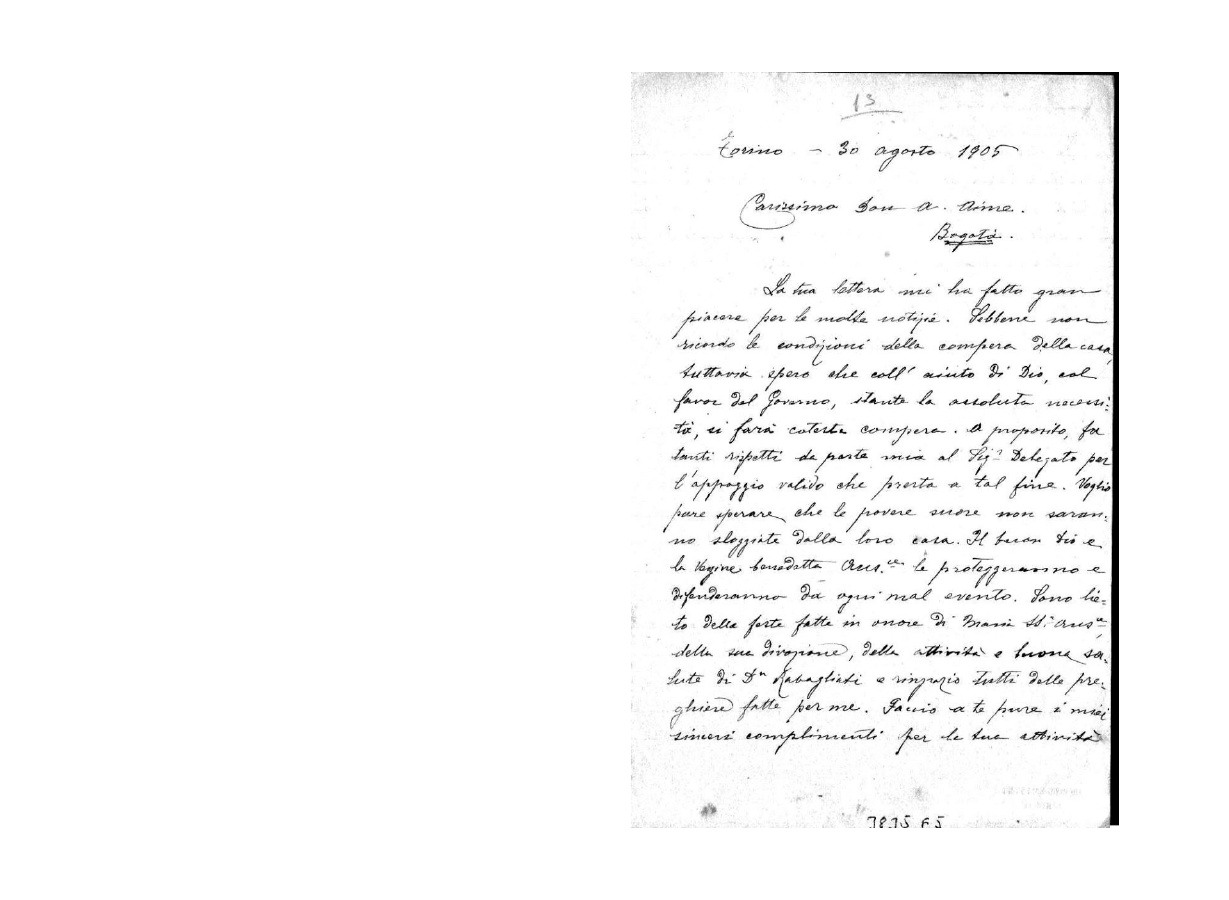 13
Torino - 30 agosto 1905
Carissimo Don A. Aime.
Bogotà.
La tua lettera mi ha fatto gran
piacere per le molte notizie. Sebbene non
ricordo le condizioni della compera della casa,
tuttavia spero che coll' aiuto di Dio, col
favor del Governo, stante la assoluta necessi-
tà, si farà cotesta compera. A proposito, fa
tanti rispetti da parte mia al Sigr Delegato per
l'appoggio valido che presta a tal fine. Voglio
pure sperare che le povere suore non saran-
no sloggiate dalla loro casa. Il buon Dio e
la Vergine benedetta Aus.ce le proteggeranno e
difenderanno da ogni mal evento. Sono lie-
to della feste fatte in onore di Maria SS. Ausce,
della sua divozione, della attività e buona sa-
lute di Dn Rabagliati e ringrazio tutti delle pre-
ghiere fatte per me. Faccio a te pure i miei
sinceri complimenti per la tua attività